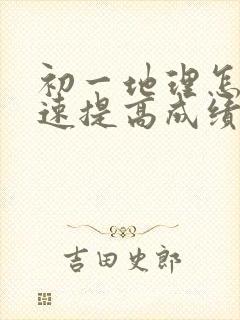 初一地理怎
速提高成绩
吉田史郎